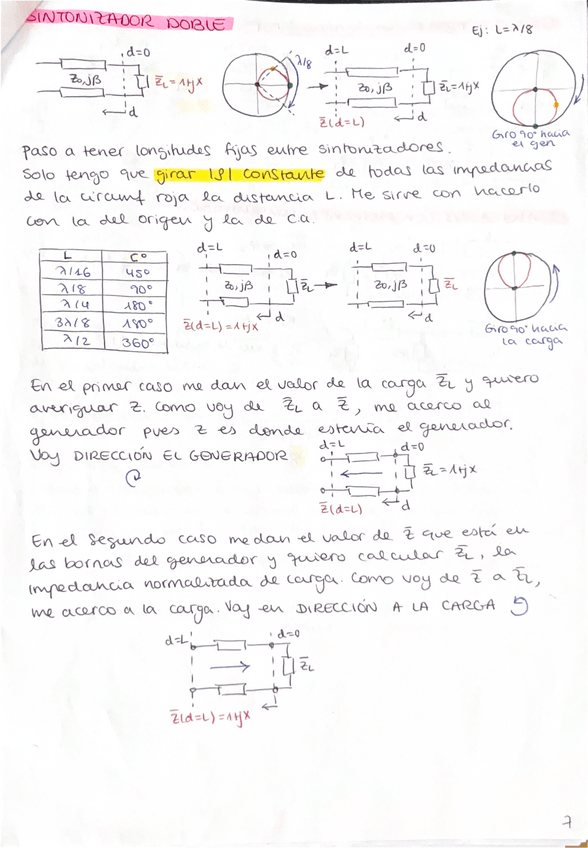 SINTONIZADOR DOBLE
Ej: L=λ/8
d=0
Z₀,jβ
Z̄L=1+jX
d
λ/8
d=L
d=0
Z₀,jβ
Z̄L=1+jX
Z̄(d=L)
d
Giro 90° hacia
el gen
Paso a tener longitudes fijas entre sintonizadores.
Solo tengo que girar |ρ| constante de todas las impedancias
de la circunf roja la distancia L. Me sirve con hacerlo
con la del origen y la de c.a.
L C°
λ/16 45°
λ/8 90°
λ/4 180°
3λ/8 180°
λ/2 360°
d=L
d=0
Z₀,jβ
Z̄L
d
Z̄(d=L)=1+jX
d=L
d=0
Z₀,jβ
Z̄L
d
Giro 90° hacia
la carga
En el primer caso me dan el valor de la carga Z̄L y quiero
averiguar Z. Como voy de Z̄L a Z̄, me acerco al
generador pues Z es donde estaría el generador.
Voy DIRECCIÓN EL GENERADOR
d=L
d=0
Z̄L=1+jX
Z̄(d=L)
d
En el segundo caso me dan el valor de Z̄ que está en
las bornas del generador y quiero calcular Z̄L, la
impedancia normalizada de carga. Como voy de Z̄ a Z̄L,
me acerco a la carga. Voy en DIRECCIÓN A LA CARGA
d=L
d=0
Z̄L
Z̄(d=L)=1+jX
7